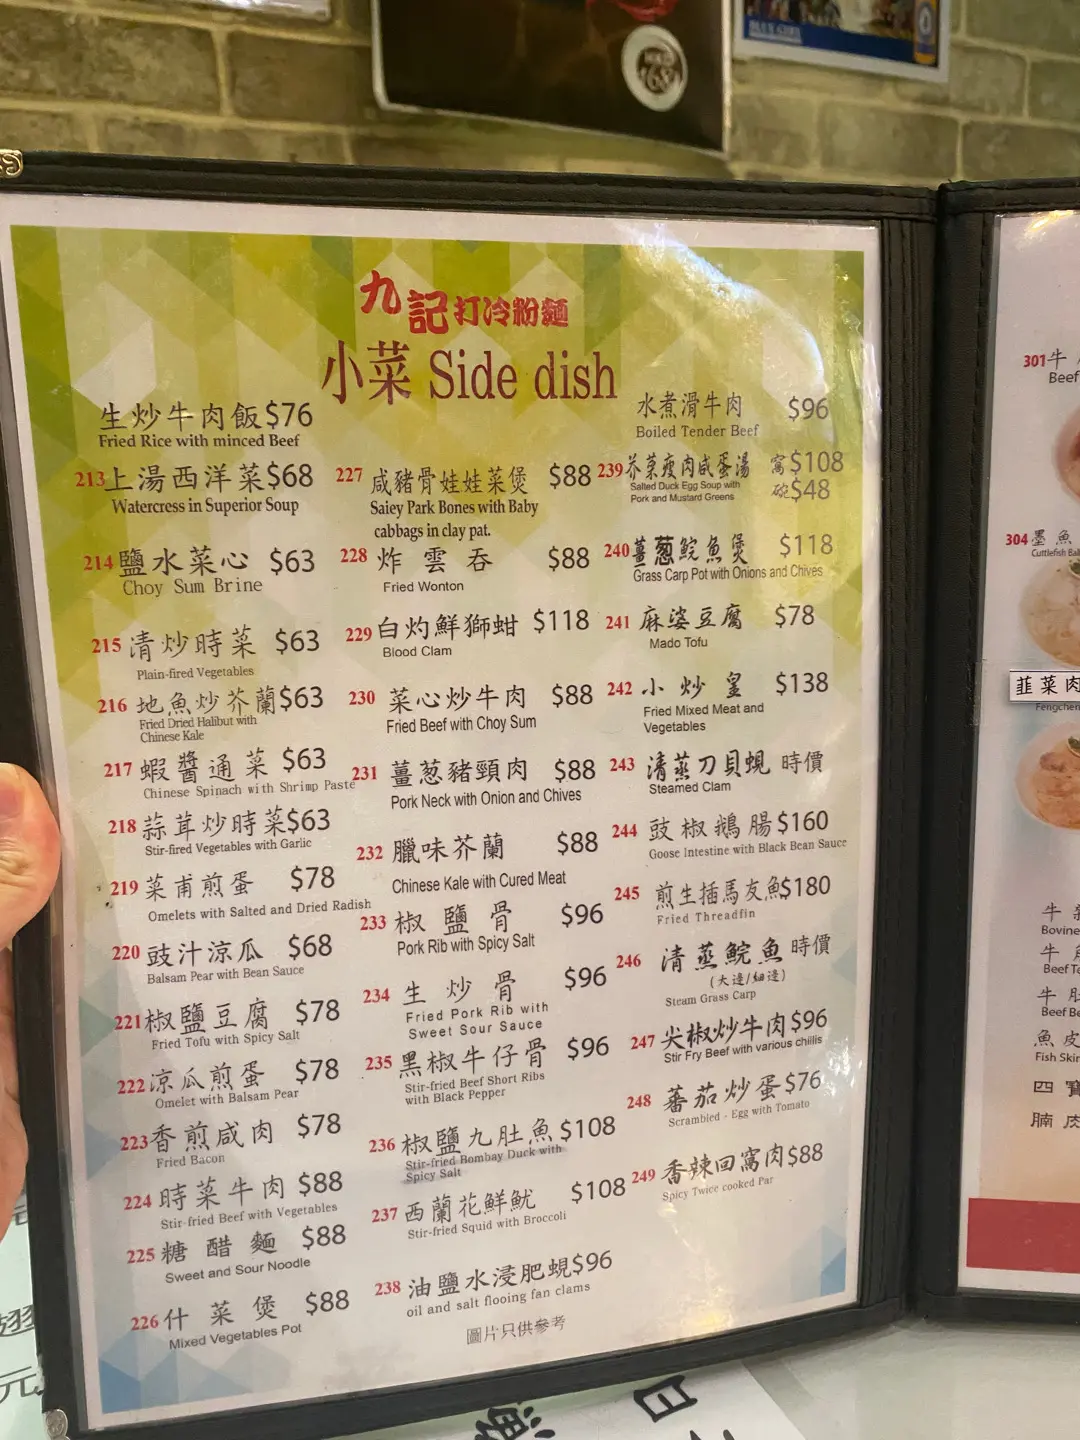 BLUE GIRL
九記打冷粉麵
小菜 Side dish
生炒牛肉飯 $76
Fried Rice with minced Beef
213 上湯西洋菜 $68
Watercress in Superior Soup
214 鹽水菜心 $63
Choy Sum Brine
215 清炒時菜 $63
Plain-fired Vegetables
216 地魚炒芥蘭 $63
Fried Dried Halibut with
Chinese Kale
217 蝦醬通菜 $63
Chinese Spinach with Shrimp Paste
218 蒜茸炒時菜 $63
Stir-fired Vegetables with Garlic
219 菜甫煎蛋 $78
Omelets with Salted and Dried Radish
220 豉汁涼瓜 $68
Balsam Pear with Bean Sauce
221 椒鹽豆腐 $78
Fried Tofu with Spicy Salt
222 涼瓜煎蛋 $78
Omelet with Balsam Pear
223 香煎咸肉 $78
Fried Bacon
224 時菜牛肉 $88
Stir-fried Beef with Vegetables
225 糖醋麵 $88
Sweet and Sour Noodle
226 什菜煲 $88
Mixed Vegetables Pot
227 咸豬骨娃娃菜煲 $88
Saiey Park Bones with Baby
cabbags in clay pat.
228 炸雲吞 $88
Fried Wonton
229 白灼鮮獅蚶 $118
Blood Clam
230 菜心炒牛肉 $88
Fried Beef with Choy Sum
231 薑葱豬頸肉 $88
Pork Neck with Onion and Chives
232 臘味芥蘭 $88
Chinese Kale with Cured Meat
233 椒鹽骨 $96
Pork Rib with Spicy Salt
234 生炒骨 $96
Fried Pork Rib with
Sweet Sour Sauce
235 黑椒牛仔骨 $96
Stir-fried Beef Short Ribs
with Black Pepper
236 椒鹽九肚魚 $108
Stir-fried Bombay Duck with
Spicy Salt
237 西蘭花鮮魷 $108
Stir-fried Squid with Broccoli
238 油鹽水浸肥蜆 $96
oil and salt flooing fan clams
水煮滑牛肉 $96
Boiled Tender Beef
239 芥菜瘦肉咸蛋湯 窩 $108
Salted Duck Egg Soup with 碗 $48
Pork and Mustard Greens
240 薑葱鯇魚煲 $118
Grass Carp Pot with Onions and Chives
241 麻婆豆腐 $78
Mado Tofu
242 小炒皇 $138
Fried Mixed Meat and
Vegetables
243 清蒸刀貝蜆 時價
Steamed Clam
244 豉椒鵝腸 $160
Goose Intestine with Black Bean Sauce
245 煎生插馬友魚 $180
Fried Threadfin
246 清蒸鯇魚 時價
(大邊/細邊)
Steam Grass Carp
247 尖椒炒牛肉 $96
Stir Fry Beef with various chillis
248 蕃茄炒蛋 $76
Scrambled - Egg with Tomato
249 香辣回窩肉 $88
Spicy Twice cooked Par
圖片只供參考
301 牛
Beef
304 墨魚
Cuttlefish Bal
韮菜肉
Fengchen
牛
Bovine
牛
Beef Te
牛肚
Beef Be
魚皮
Fish Skin
四寶
腩肉
元